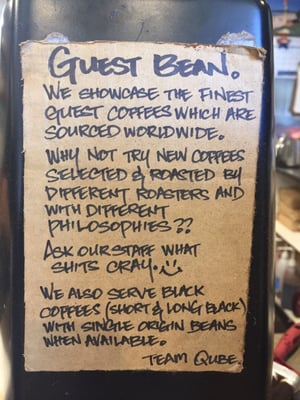 GUEST BEAN.
WE SHOWCASE THE FINEST
GUEST COFFEES WHICH ARE
SOURCED WORLDWIDE.
WHY NOT TRY NEW COFFEES
SELECTED & ROASTED BY
DIFFERENT ROASTERS AND
WITH DIFFERENT
PHILOSOPHIES??
ASK OUR STAFF WHAT
SHITS CRAY.
WE ALSO SERVE BLACK
COFFEES (SHORT & LONG BLACK)
WITH SINGLE ORIGIN BEANS
WHEN AVAILABLE.
TEAM QUBE.